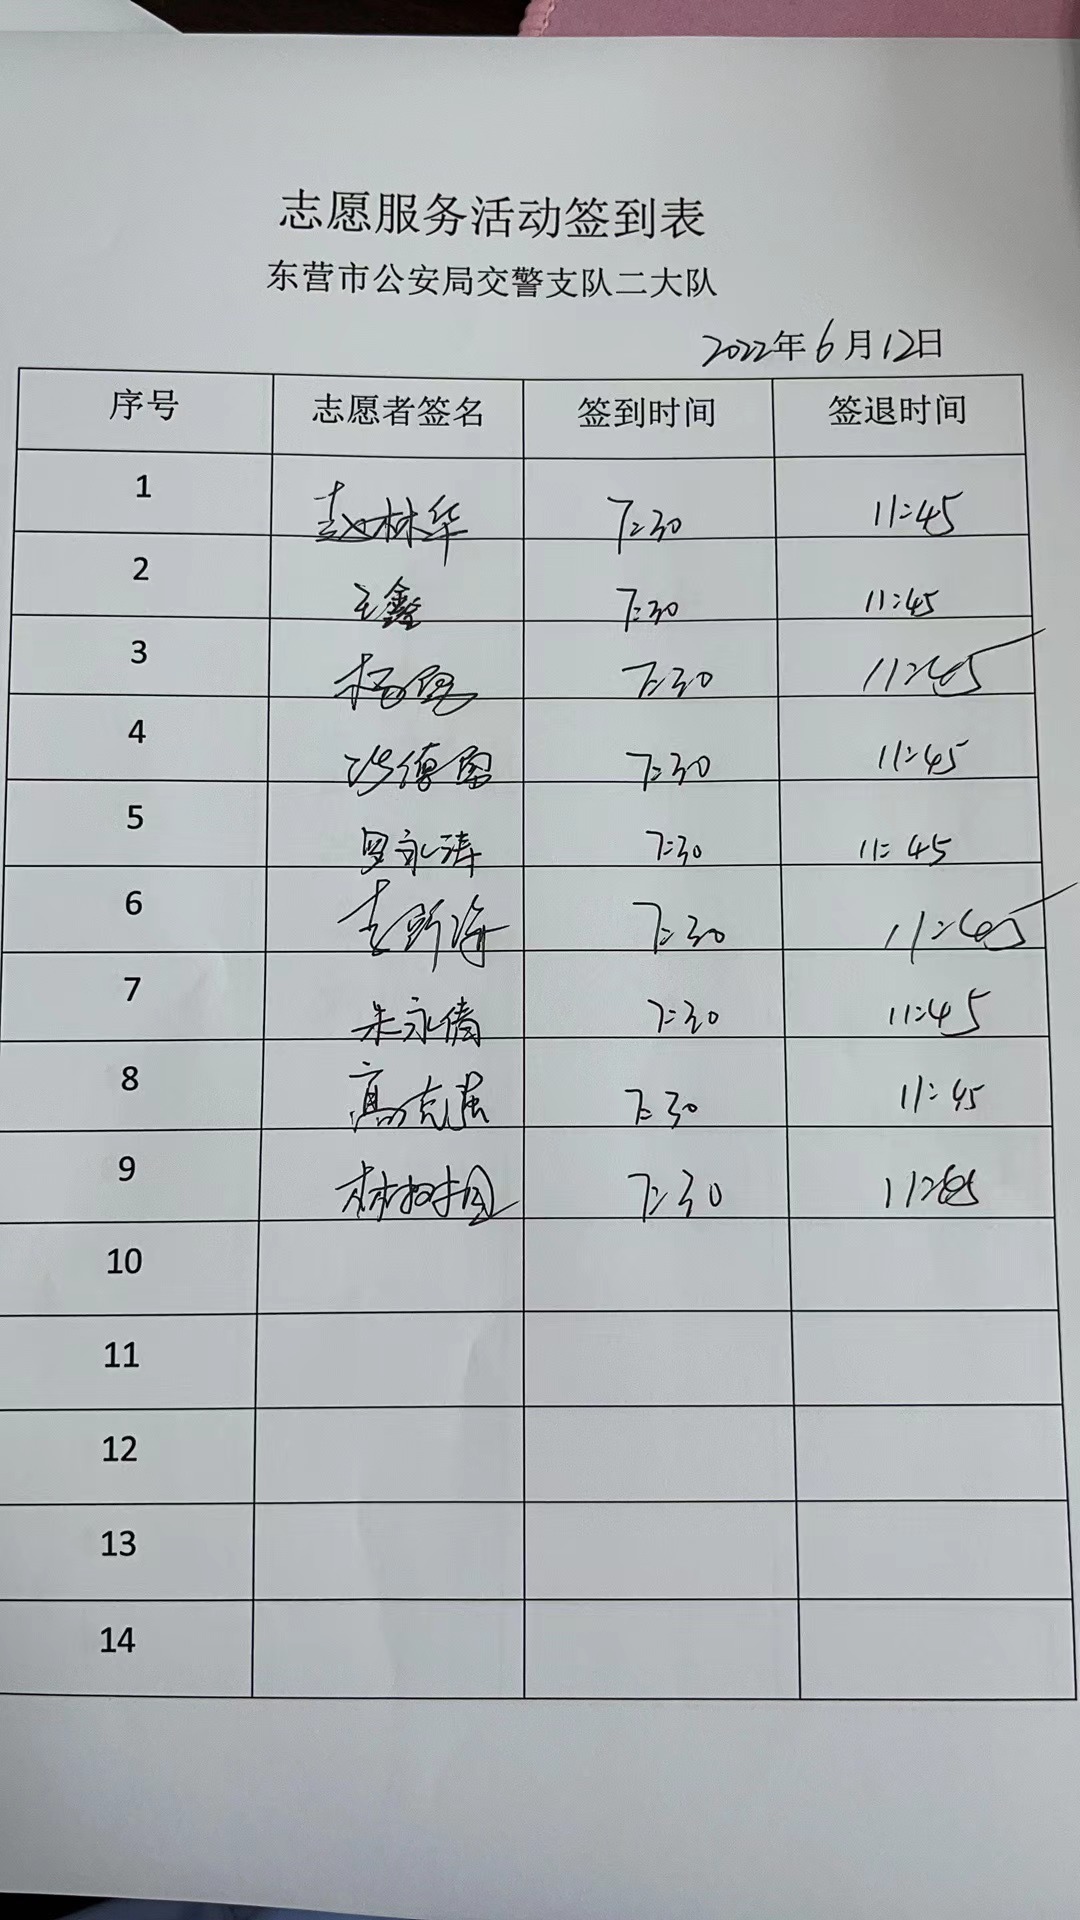 志愿服务活动签到表
东营市公安局交警支队二大队
2022年6月12日
序号 志愿者签名 签到时间 签退时间
1 赵林华 7:30 11:45
2 王鑫 7:30 11:45
3 7:30 11:45
4 7:30 11:45
5 罗永涛 7:30 11:45
6 7:30 11:45
7 朱永倩 7:30 11:45
8 高克强 7:30 11:45
9 7:30 11:45
10
11
12
13
14